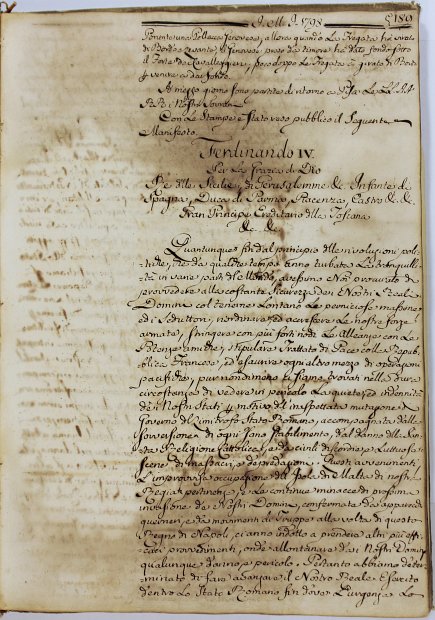 1798
Ponente una Polacca Genovese, allora quando la Fregata ha virato
di Bordo e cessante, il Genovese preso da timore ha dato fondo sotto
il Forte de Cavalleggieri, poco doppo la Fregata à girato di Bordo
A mezzo giorno sono partite di ritorno a Pisa le LL. AA.
RR. i Nostri Sovrani
Con le Stampe è stato reso pubblico il Seguente
Manifesto
Ferdinando IV.
Per la Grazia di Dio
Rè delle Sicilie, di Gerusalemme &c. Infante di
Spagna, Duca di Parma, Piacenza, Castro &c. &c.
Gran Principe Ereditario della Toscana
&c. &c.
Quantunque fin dal principio delle rivoluzioni poli-
tiche, che da qualche tempo anno turbata la tranquilli-
tà in varie parti del Mondo, avessimo Noi procurato di
provvedere alla costante sicurezza dei Nostri Reali
Domini col tenerne lontano le perniciose massime
ed i Seduttori, riordinare ed accrescere le nostre forze
armate, stringere con più forti nodi le Alleanze con le
Potenze amiche, stipulare Trattato di Pace colla Repub-
blica Francese, ed esaurire ogni altro mezzo di operazioni
pacifiche, pur nondimeno ci siamo trovati nella dura
circostanza di vedere in pericolo la quiete, ed indennità
dei Nostri Stati, a motivo dell'inaspettata mutazione di
Governo del limitrofo Stato Romano, accompagnata dalla
sovversione di ogni sano stabilimento, dal danno della San-
ta Religione Cattolica, e da cinti di lordie, e luttuose
scene di massacri, e depredazioni. Questi avvenimenti
l'improvvisa occupazione dell'Isola di Malta di nostra
Regia pertinenza, e le continue minacce di prossima
invasione de Nostri Domini, confermata da apparati
guerrieri, e da movimenti di Truppe alla volta di questo
Regno di Napoli, ci anno indotto a prendere altri più effi-
caci provvedimenti, onde allontanare dai Nostri Domini
qualunque danno, e pericolo. Pertanto abbiamo deter-
minato di fare avanzare il Nostro Reale Esercito
dentro lo Stato Romano fin dove l'urgenza lo